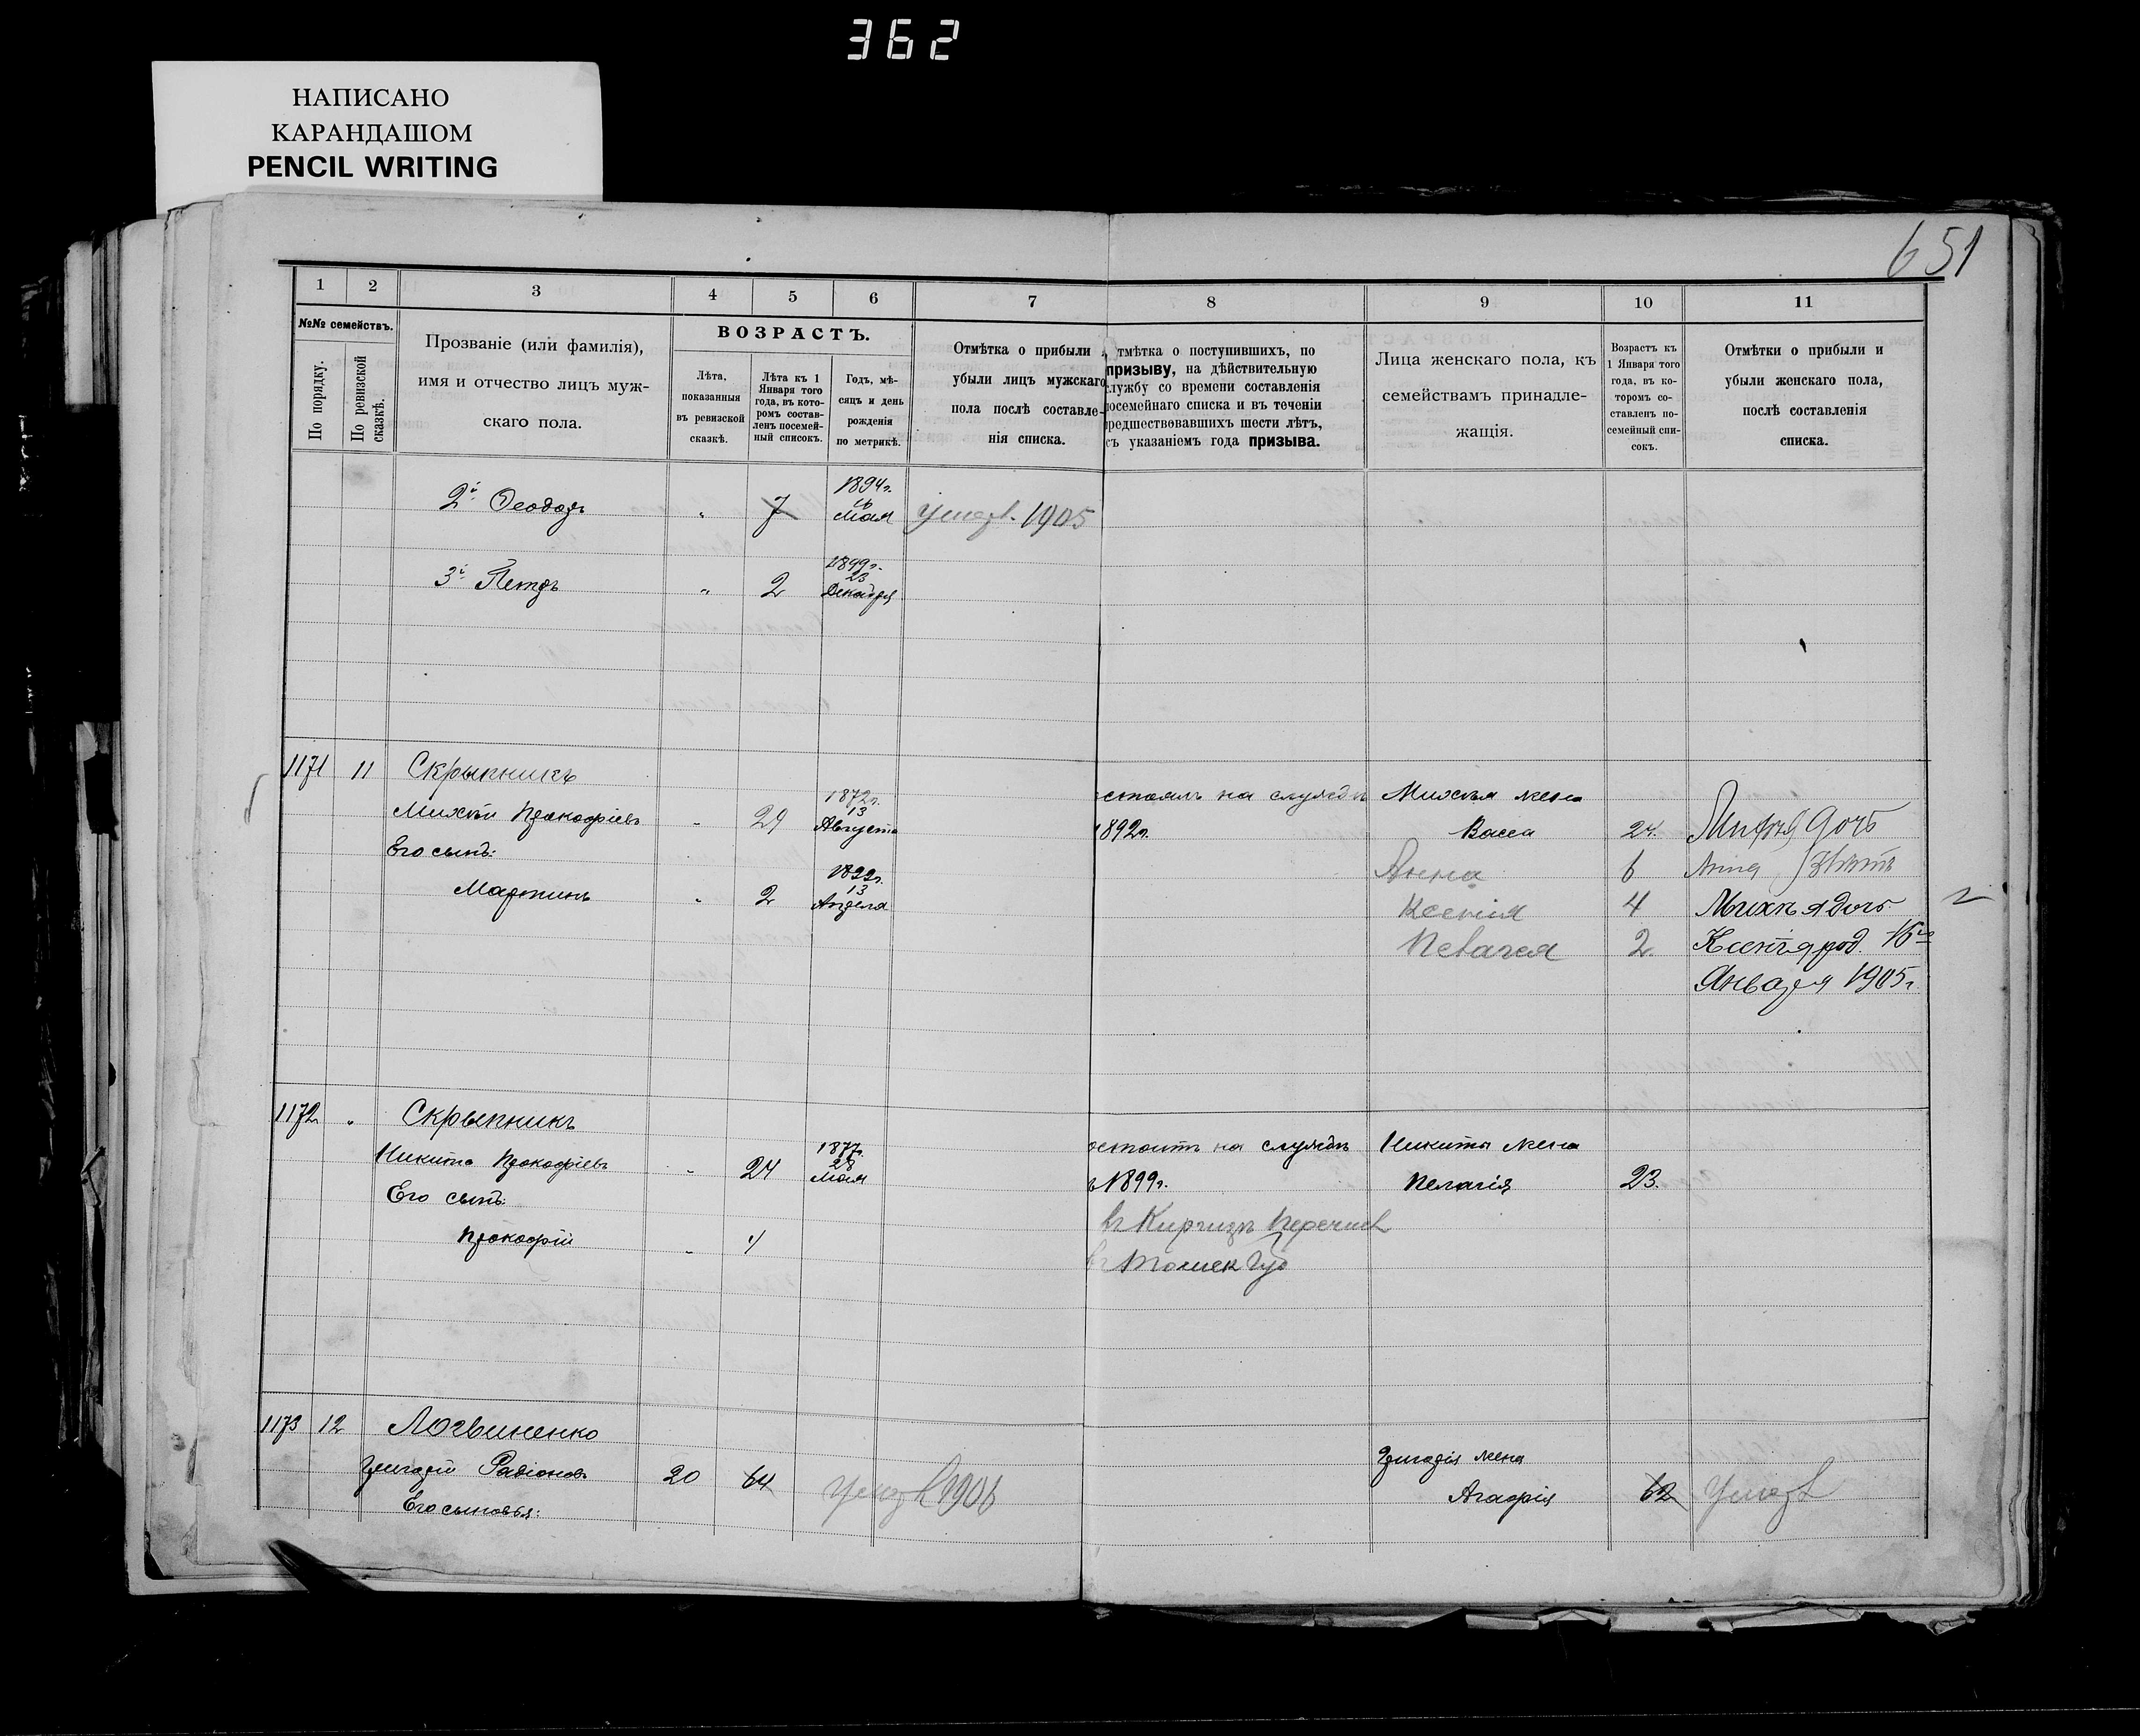 362
НАПИСАНО
КАРАНДАШОМ
PENCIL WRITING
651
1 2 3 4 5 6 7 8 9 10 11
№№ семействъ.
По порядку.
По ревизской сказкѣ.
Прозваніе (или фамилія),
имя и отчество лицъ муж-
скаго пола.
ВОЗРАСТЪ.
Лѣта,
показанныя
въ ревизской
сказкѣ.
Лѣта къ 1
Января того
года, въ кото-
ромъ состав-
ленъ посемей-
ный списокъ.
Годъ, мѣ-
сяцъ и день
рожденія
по метрикѣ.
Отмѣтка о прибыли
убыли лицъ мужскаго
пола послѣ составле-
нія списка.
тмѣтка о поступившихъ, по
призыву, на дѣйствительную
службу со времени составленія
посемейнаго списка и въ теченіи
редшествовавшихъ шести лѣтъ,
съ указаніемъ года призыва.
Лица женскаго пола, къ
семействамъ принадле-
жащія.
Возрастъ къ
1 Января того
года, въ ко-
торомъ со-
ставленъ по-
семейный спи-
сокъ.
Отмѣтки о прибыли и
убыли женскаго пола,
послѣ составленія
списка.
2й Ѳеодоръ " 7 1894г. Мая 1905
3й Петръ " 2 1899г. 23 Декабря
1171 11 Скрыпникъ
Михѣй Прокофіевъ " 29 1872г. 13 Августа
стоялъ на службѣ
1892г.
Михѣя жена
Васса 24.
Его сынъ:
Мартинъ " 2 13 Апреля
Анна 6
Ксенія 4 Михѣя дочь
Пелагея 2. Ксенія род. 16го
Января 1905г.
1172 " Скрыпникъ
Никита Прокофіевъ " 24 1877г. 28 Мая
стоитъ на службѣ
ъ 1899г.
Никиты жена
Пелагія 23.
Его сынъ:
Прокофій " 4
1173 12 Логвиненко
Григорій Радіоновъ 20 64 1906
Его сыновья:
Григорія жена
Агафія 62